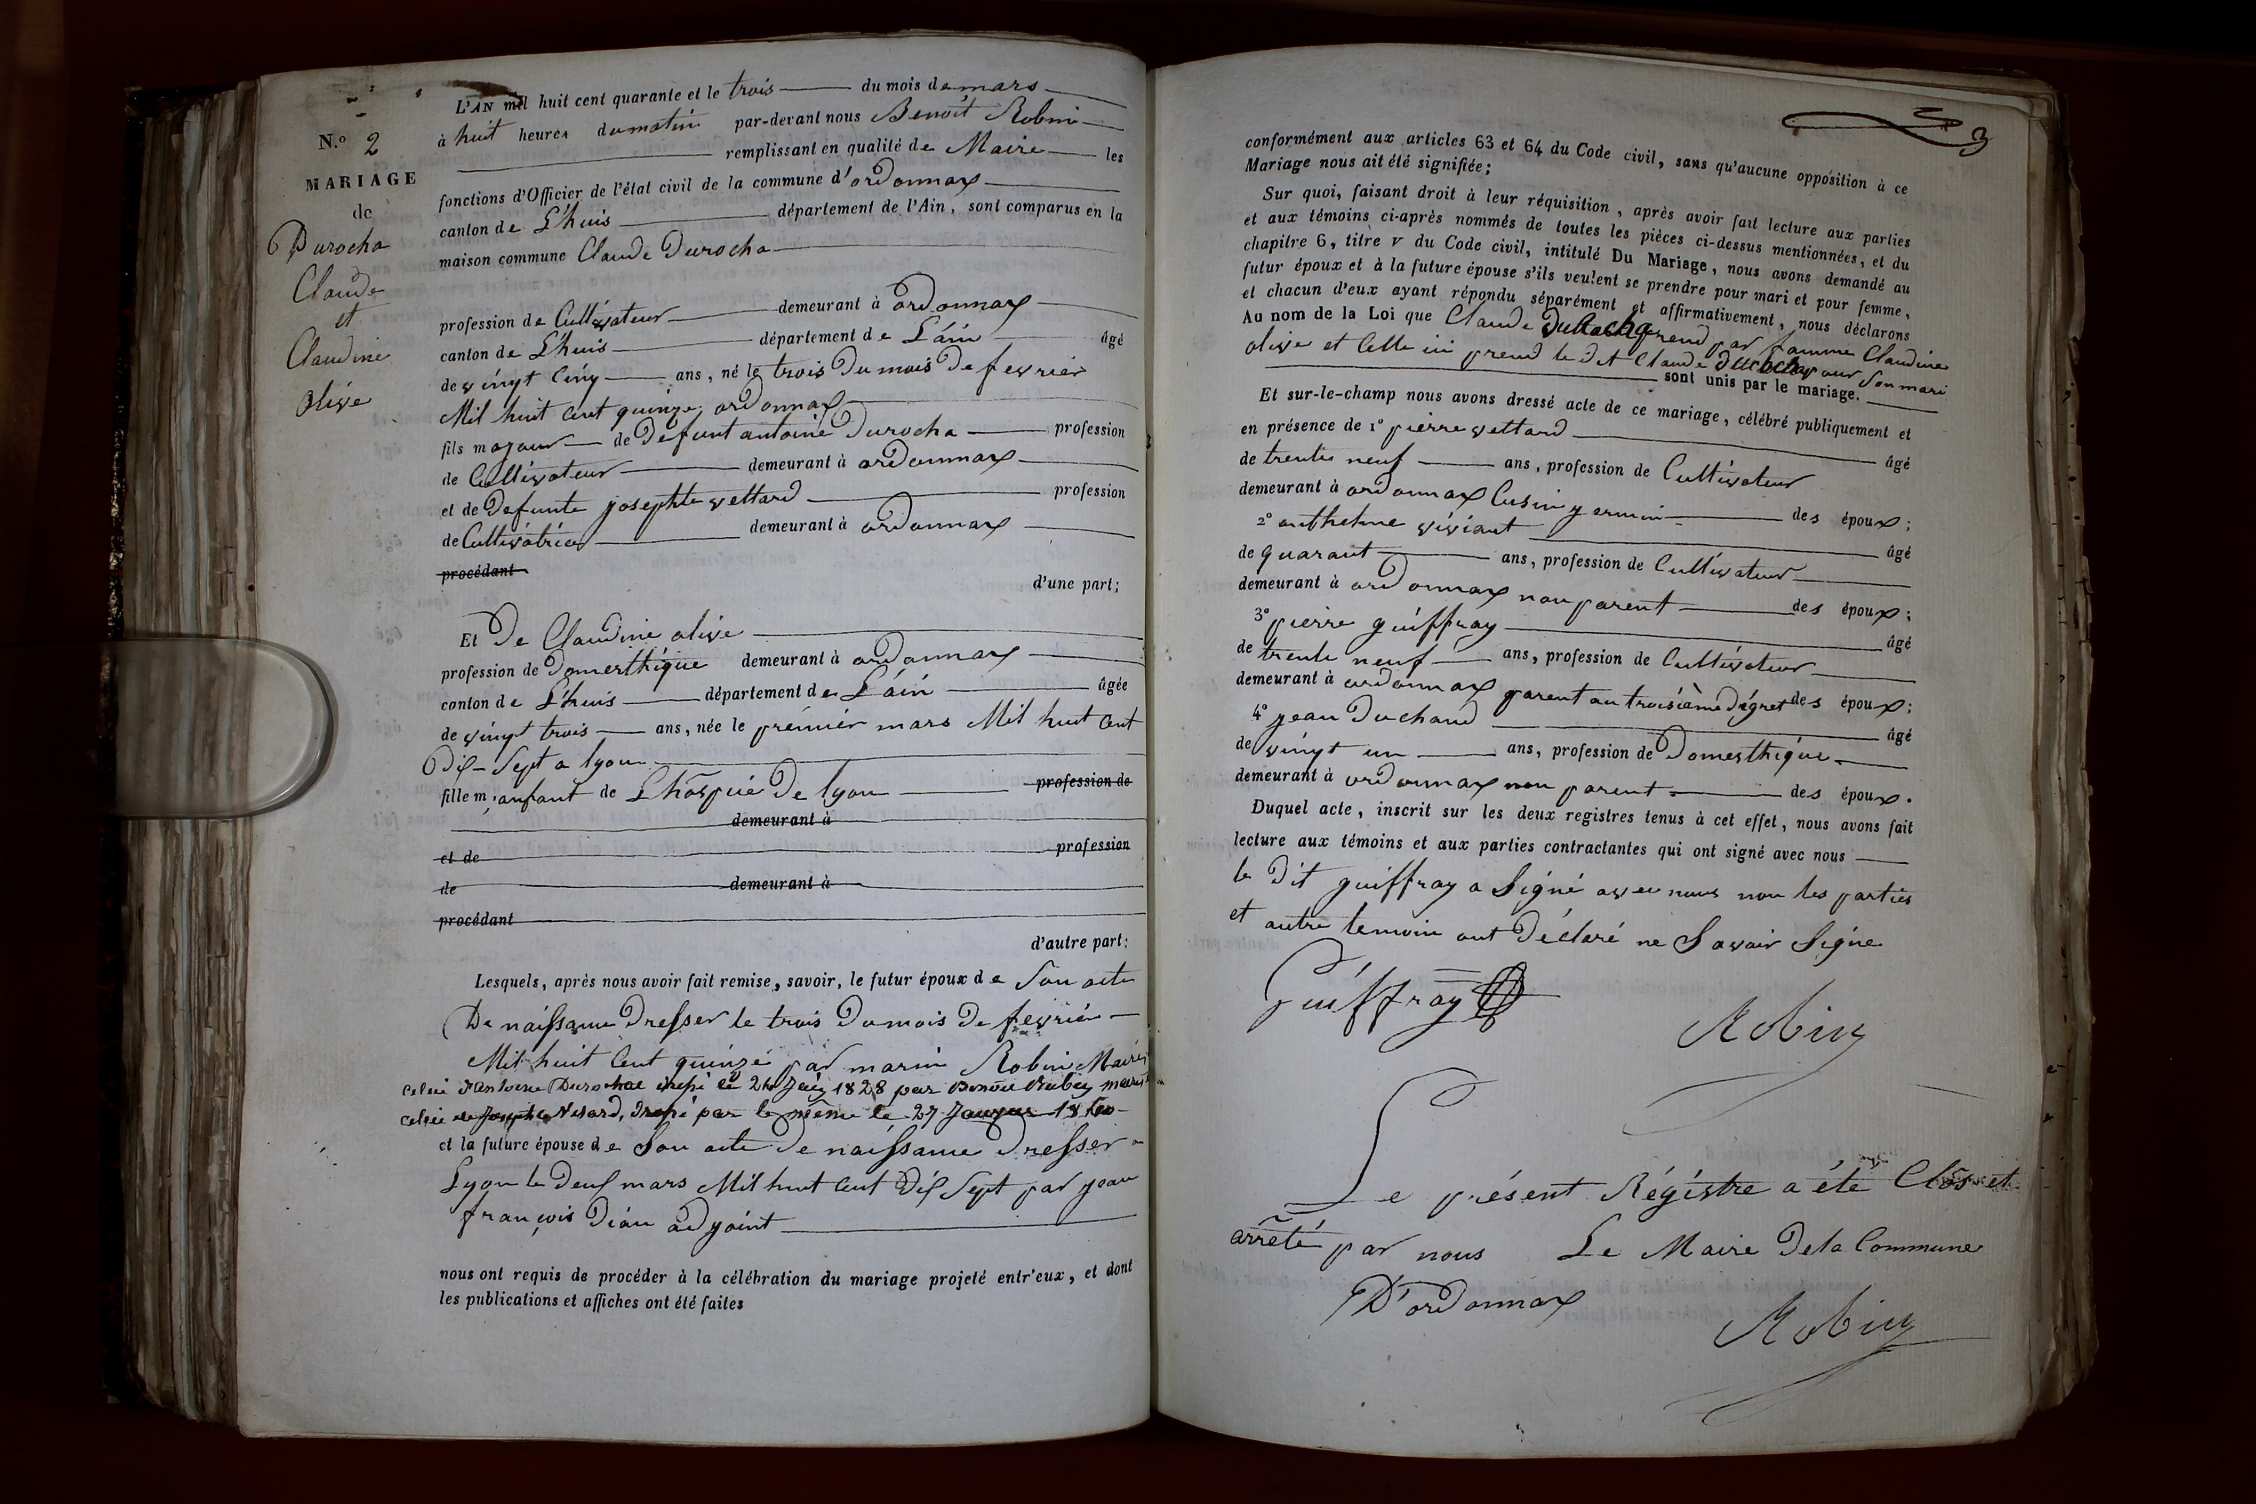 N.º 2
MARIAGE
de
Durocha
Claude
et
Claudine
Olive
L'AN mil huit cent quarante et le trois du mois de mars
à huit heures du matin par-devant nous Benoit Robin
remplissant en qualité de Maire les
fonctions d'Officier de l'état civil de la commune d'ordonnax
canton de L'huis département de l'Ain, sont comparus en la
maison commune Claude Durocha
profession de Cultivateur demeurant à ordonnax
canton de L'huis département de L'áin âgé
de vingt cinq ans, né le trois du mois de fevrier
Mil huit cent quinze, ordonnax
fils majour de defunt antoine Durocha profession
de Cultivateur demeurant à ordonnax
et de defunte josephte vettard profession
de Cultivátrice demeurant à ordonnax
procédant
d'une part;
Et De Claudine olive
profession de domesthique demeurant à ordonnax
canton de L'huis département de L'áin âgée
de vingt trois ans, née le prémiér mars Mil huit Cent
Dix-Sept a lyon
fille m, anfant de L'hospice De lyon profession de
demeurant à
et de profession
de demeurant à
procédant
d'autre part:
Lesquels, après nous avoir fait remise, savoir, le futur époux de Son acte
De naissance Dresser le trois Du mois de fevrier
Mil huit Cent quinze par marin Robin Maire,
celui d'Antoine Durochat 1828 par Benoit Rubin maire
celui de Vetard, dressé par le même le 27
et la future épouse de Son acte de naissance dresser a
Lyon le deux mars Mil huit Cent Dix Sept par jean
françois Dian adjoint
nous ont requis de procéder à la célébration du mariage projeté entr'eux, et dont
les publications et affiches ont été faites
3
conformément aux articles 63 et 64 du Code civil, sans qu'aucune opposition à ce
Mariage nous ait été signifiée;
Sur quoi, faisant droit à leur réquisition, après avoir fait lecture aux parties
et aux témoins ci-après nommés de toutes les pièces ci-dessus mentionnées, et du
chapitre 6, titre V du Code civil, intitulé Du Mariage, nous avons demandé au
futur époux et à la future épouse s'ils veulent se prendre pour mari et pour femme,
et chacun d'eux ayant répondu séparément et affirmativement, nous déclarons
Au nom de la Loi que Claude Durocha prend par famme Claudine
olive et Celle ici prend le dit Claude Durocha pour Son mari
sont unis par le mariage.
Et sur-le-champ nous avons dressé acte de ce mariage, célébré publiquement et
en présence de 1º pierre vettard âgé
de trente neuf ans, profession de Cultivateur
demeurant à ordonnax Cusin germin des époux;
2º anthelme viviant âgé
de quarant ans, profession de Cultivateur
demeurant à ordonnax non parent des époux;
3º pierre guiffray âgé
de trente neuf ans, profession de Cultivateur
demeurant à ordonnax parent au troisième dégret des époux;
4º jean Duchand âgé
de vingt un ans, profession de Domesthique
demeurant à ordonnax non parent des époux.
Duquel acte, inscrit sur les deux registres tenus à cet effet, nous avons fait
lecture aux témoins et aux parties contractantes qui ont signé avec nous
le Dit guiffray a Signé avec nous non les parties
et autre temoin ont Déclaré ne Savoir Signe
Guiffray
Robin
Le présent Régistre a été Clos et
arrêté par nous Le Maire De la Commune
D'ordonnax
Robin